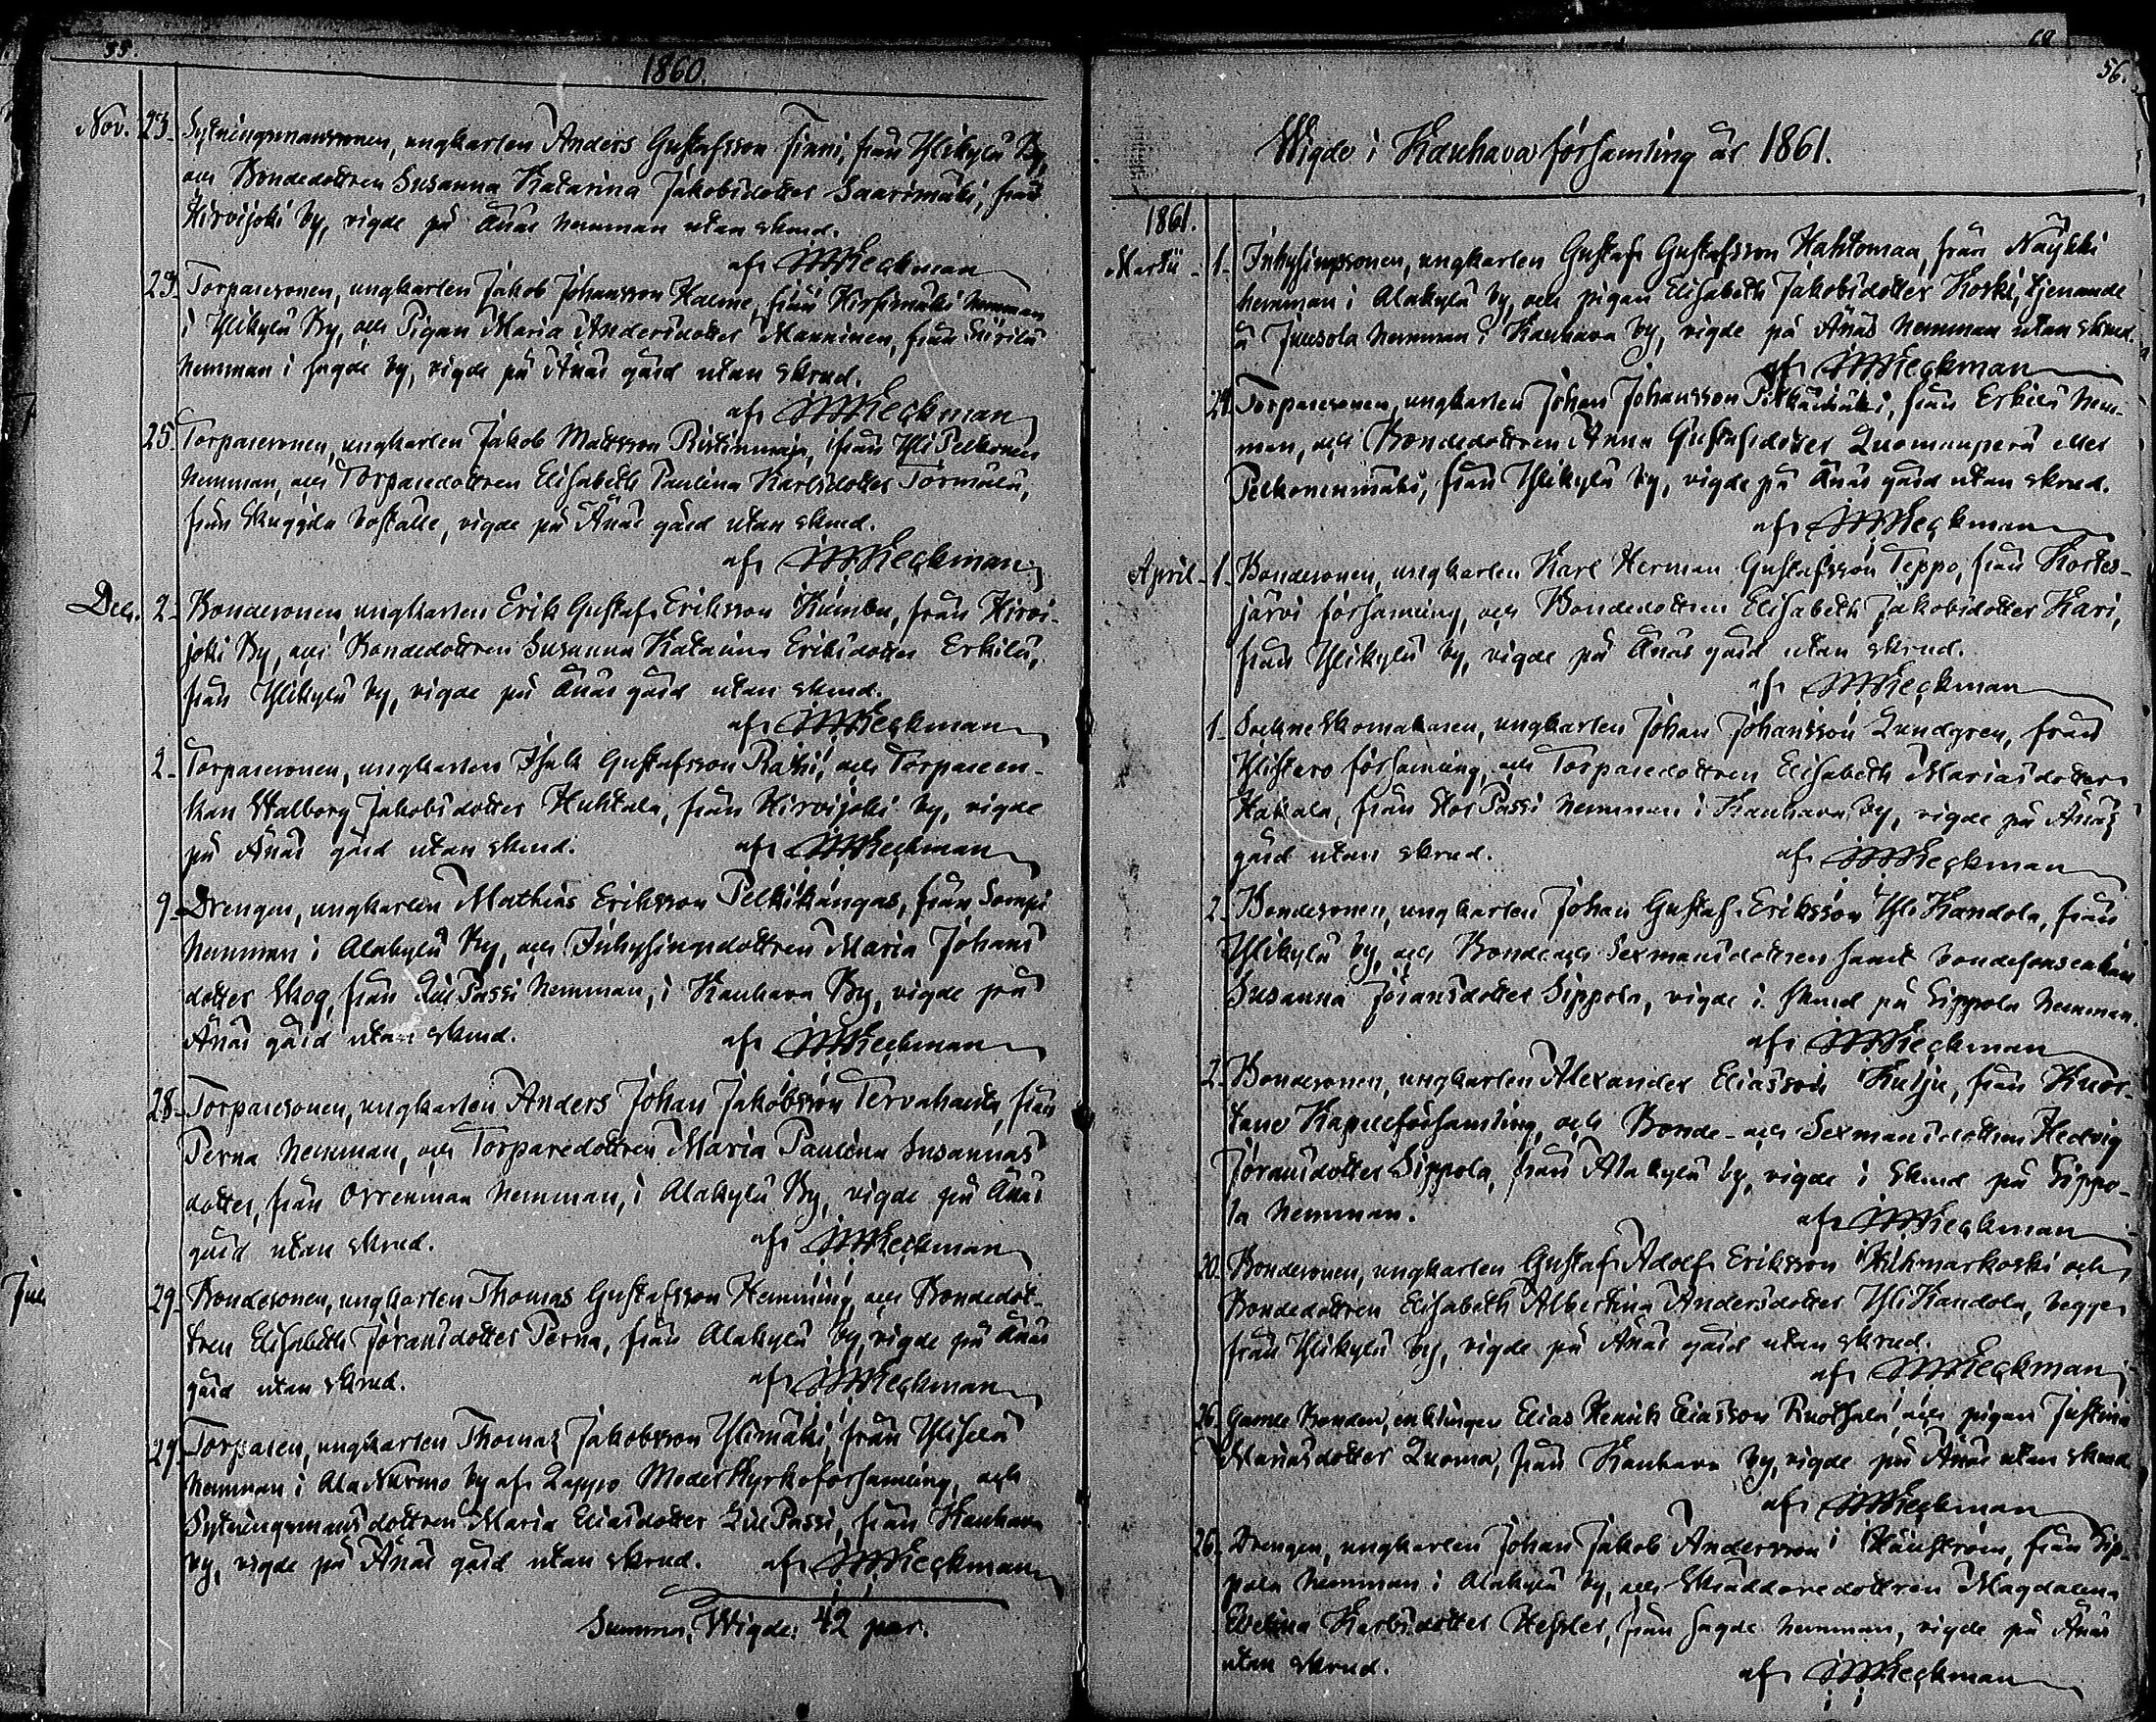 55.
1860.
Nov. 23. Sytningsmanssonen, ungkarlen Anders Gustafsson Finni, från Ylikylä By,
och Bondedottren Susanna Katarina Jakobsdotter Saarimäki, från
Hirvijoki by, vigde på Ånäs hemman utan skrud.
af
23. Torparesonen, ungkarlen Jakob Johansson Halme, från hemman
i Ylikylä By, och Pigan Maria Andersdotter Manninen, från
hemman i sagde by, vigde på Ånäs gård utan skrud.
af
25. Torparesonen, ungkarlen Jakob Mattsson Ristinmaja, ifrån Yli Pelkonen
hemman, och Torparedottren Elisabeth Paulina Karlsdotter Törmälä,
från boställe, vigde på Ånäs gård utan skrud.
af
Dec. 2. Bondesonen, ungkarlen Erik Gustaf Eriksson från Hirvi-
joki By, och Bondedottren Susanna Katarina Eriksdotter Erkilä,
från Ylikylä by, vigde på Ånäs gård utan skrud.
af
2. Torparesonen, ungkarlen Isak Gustafsson och Torpareen-
kan Walborg Jakobsdotter Huhtala, från Hirvijoki by, vigde
på Ånäs gård utan skrud. af
9. Drengen, ungkarlen Mathias Eriksson Pelkikangas, från Sorvari
hemman i Alakylä By, och Inhysingsdottren Maria Johans
dotter Skog, från Lill Passi hemman, i Kauhava By, vigde på
Ånäs gård utan skrud. af
28. Torparesonen, ungkarlen Anders Johan Jakobsson Tervahauta, från
Perna hemman, och Torparedottren Maria Paulina Susannas
dotter, från Orrenmaa hemman, i Alakylä By, vigde på Ånäs
gård utan skrud. af
29. Bondesonen, ungkarlen Thomas Gustafsson Hemming, och Bondedot-
tren Elisabeth Jöransdotter Perna, från Alakylä by, vigde på Ånäs
gård utan skrud. af
29. Torparen, ungkarlen Thomas Jakobsson Ylimäki, från
hemman i Ala Nurmo by af Lappo Moderkyrkoförsamling, och
Sytningsmansdottren Maria Eliasdotter Lill Passi, från Kauhava
by, vigde på Ånäs gård utan skrud. af
Summa, Wigde: 42 par.
56.
Wigde i Kauhava församling år 1861.
1861.
Martii 1. Inhysingssonen, ungkarlen Gustaf Gustafsson Hahtomaa, från Naykki
hemman i Alakylä by, och pigan Elisabeth Jakobsdotter Koski, tjenande
å Juusola hemman i Kauhava by, vigde på Ånäs hemman utan skrud.
af
24. Torparesonen, ungkarlen Johan Johansson Pitkämäki, från Erkilä hem-
man, och Bondedottren Anna Gustafsdotter Luomanperä eller
Pelkonenmäki, från Ylikylä by, vigde på Ånäs gård utan skrud.
af
April 1. Bondesonen, ungkarlen Karl Herman Gustafsson Teppo, från Kortes-
järvi församling, och Bondedottren Elisabeth Jakobsdotter Kari,
från Ylikylä by, vigde på Ånäs gård utan skrud.
af
1. Sockneskomakaren, ungkarlen Johan Johansson Lundgren, från
Ylistaro församling, och Torparedottren Elisabeth Mariasdotter
Hakala, från Stor Passi hemman i Kauhava by, vigde på Ånäs
gård utan skrud. af
2. Bondesonen, ungkarlen Johan Gustaf Eriksson Yli Kandola, från
Ylikylä by, och Bonde och Sexmansdottren samt bondesonsenkan
Susanna Jöransdotter Sippola, vigde i skrud på Sippola hemman.
af
2. Bondesonen, ungkarlen Alexander Eliasson från Kuor-
tane Kapellförsamling, och Bonde- och Sexmansdottren Hedvig
Jöransdotter Sippola, från Alakylä by, vigde i skrud på Sippo-
la hemman. af
20. Bondesonen, ungkarlen Gustaf Adolf Eriksson och
Bondedottren Elisabeth Albertina Andersdotter Yli Kandola, begge
från Ylikylä by, vigde på Ånäs gård utan skrud.
af
26. Gamle Bonden, enklingen Elias Henrik Eliasson Ruotsala, och pigan Justina
Mariasdotter Luoma, från Kauhava by, vigde på Ånäs utan skrud
af
26. Drengen, ungkarlen Johan Jakob Andersson från Sip-
pola hemman i Alakylä by, och Skräddaredottren Magdalena
Evelina Karlsdotter Hessler, från sagde hemman, vigde på Ånäs
utan skrud. af